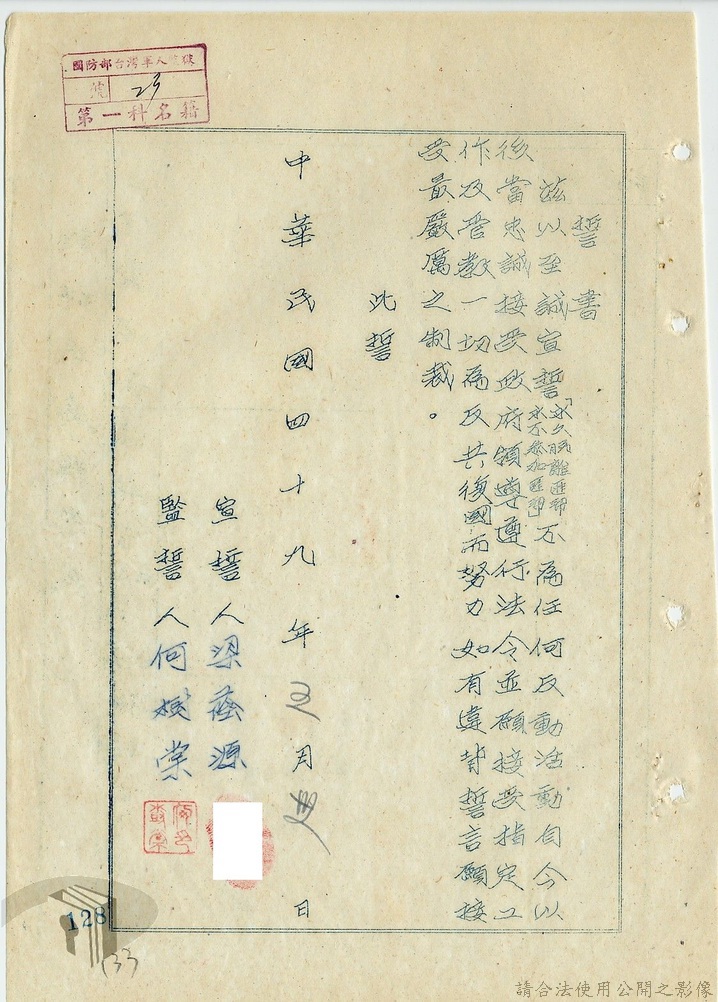 國防部台灣軍人監獄
號 23
第一科名籍
誓書
茲以至誠宣誓「永久脫離匪幫永不參加匪幫」不為任何反動活動自今以
後當忠誠接受政府領導遵行法令並願接受指定工
作及管教一切為反共復國而努力如有違背誓言願接
受最嚴厲之制裁。
此誓
中華民國四十九年 月 日
宣誓人梁 源
監誓人何 棠
128
(33)
請合法使用公開之影像